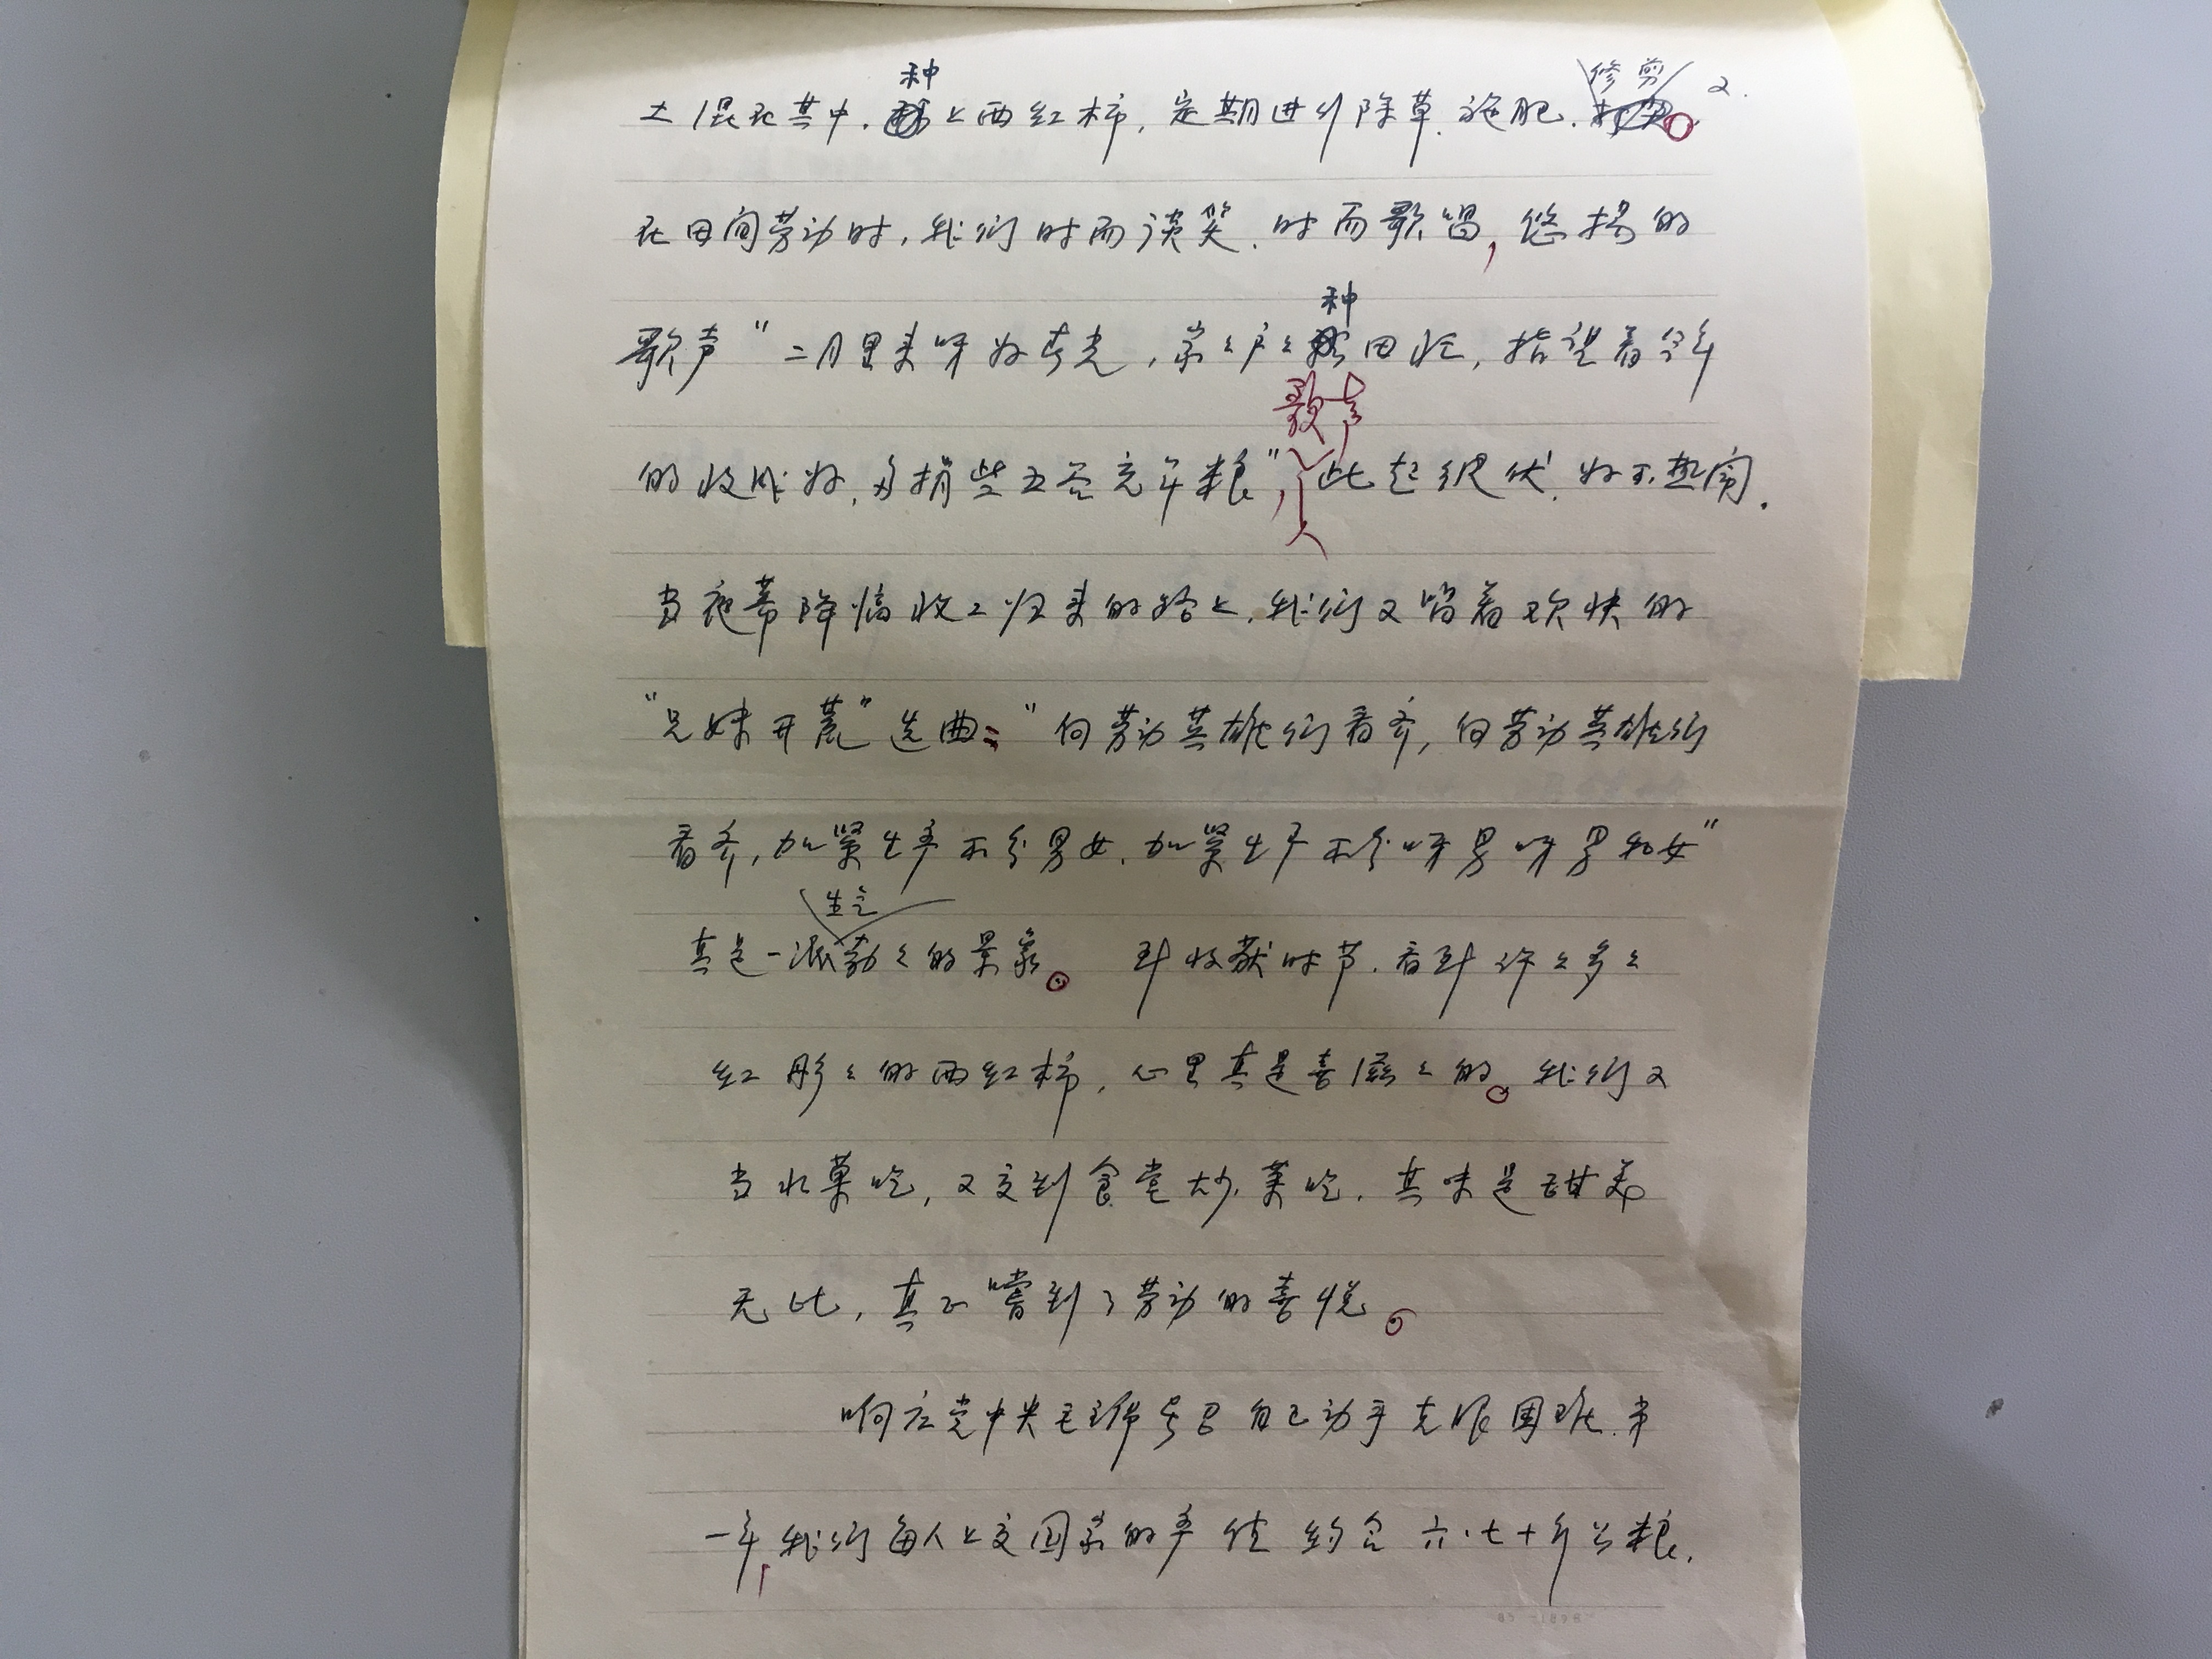 2.
土混在其中，种上西红柿，定期进行除草、施肥、修剪。
在田间劳动时，我们时而谈笑，时而歌唱，悠扬的
歌声“二月里来呀好春光，家々户々种田忙，指望着今年
的收成好，多捐些五谷充军粮”，歌声此起彼伏，好不热闹．
当夜幕降临收工归来的路上，我们又唱着欢快的
“兄妹开荒”选曲：“向劳动英雄们看齐，向劳动英雄们
看齐，加紧生产不分男女，加紧生产不分呀男呀男和女”
真是一派生气勃々的景象。 到收获时节，看到许々多々
红彤々的西红柿，心里真是喜滋々的。我们又
当水菓吃，又交到食堂炒菜吃，其味是甜美
无比，真正嚐到了劳动的喜悦。
响应党中央毛主席号召自己动手克服困难，第
一年，我们每人上交国家的产值约合六．七十斤公粮，